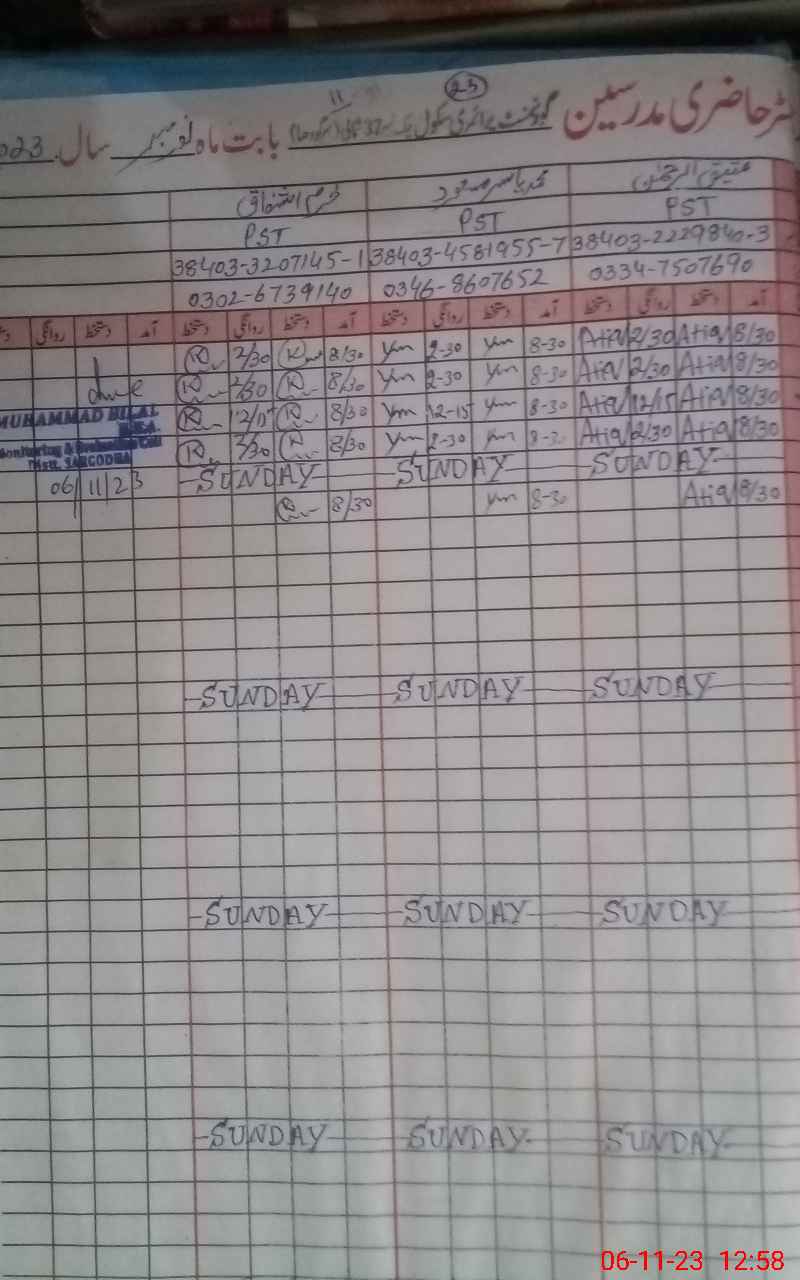 23
11
حاضری مدرسین گورنمنٹ پرائمری سکول بابت ماہ نومبر سال 2023
عتیق الرحمٰن محمد یاسر مسعود خرم اشفاق
PST PST PST
38403-3207145-1 38403-4581955-7 38403-2229840-3
0302-6739140 0346-8607652 0334-7507690
آمد دستخط روانگی دستخط آمد دستخط روانگی دستخط آمد دستخط روانگی دستخط آمد دستخط روانگی
2/30 8/30 Ym 2-30 Ym 8-30 Atiq 2/30 Atiq 8/30
2/30 8/30 Ym 2-30 Ym 8-30 Atiq 2/30 Atiq 8/30
12/15 8/30 Ym 12-15 Ym 8-30 Atiq 12/15 Atiq 8/30
2/30 8/30 Ym 2-30 Ym 8-30 Atiq 2/30 Atiq 8/30
MUHAMMAD BILAL
M.E.A.
Monitoring & Evaluation Cell
Distt. SARGODHA
06/11/23
SUNDAY SUNDAY SUNDAY
8/30 Ym 8-30 Atiq 8/30
SUNDAY SUNDAY SUNDAY
SUNDAY SUNDAY SUNDAY
SUNDAY SUNDAY SUNDAY
06-11-23 12:58